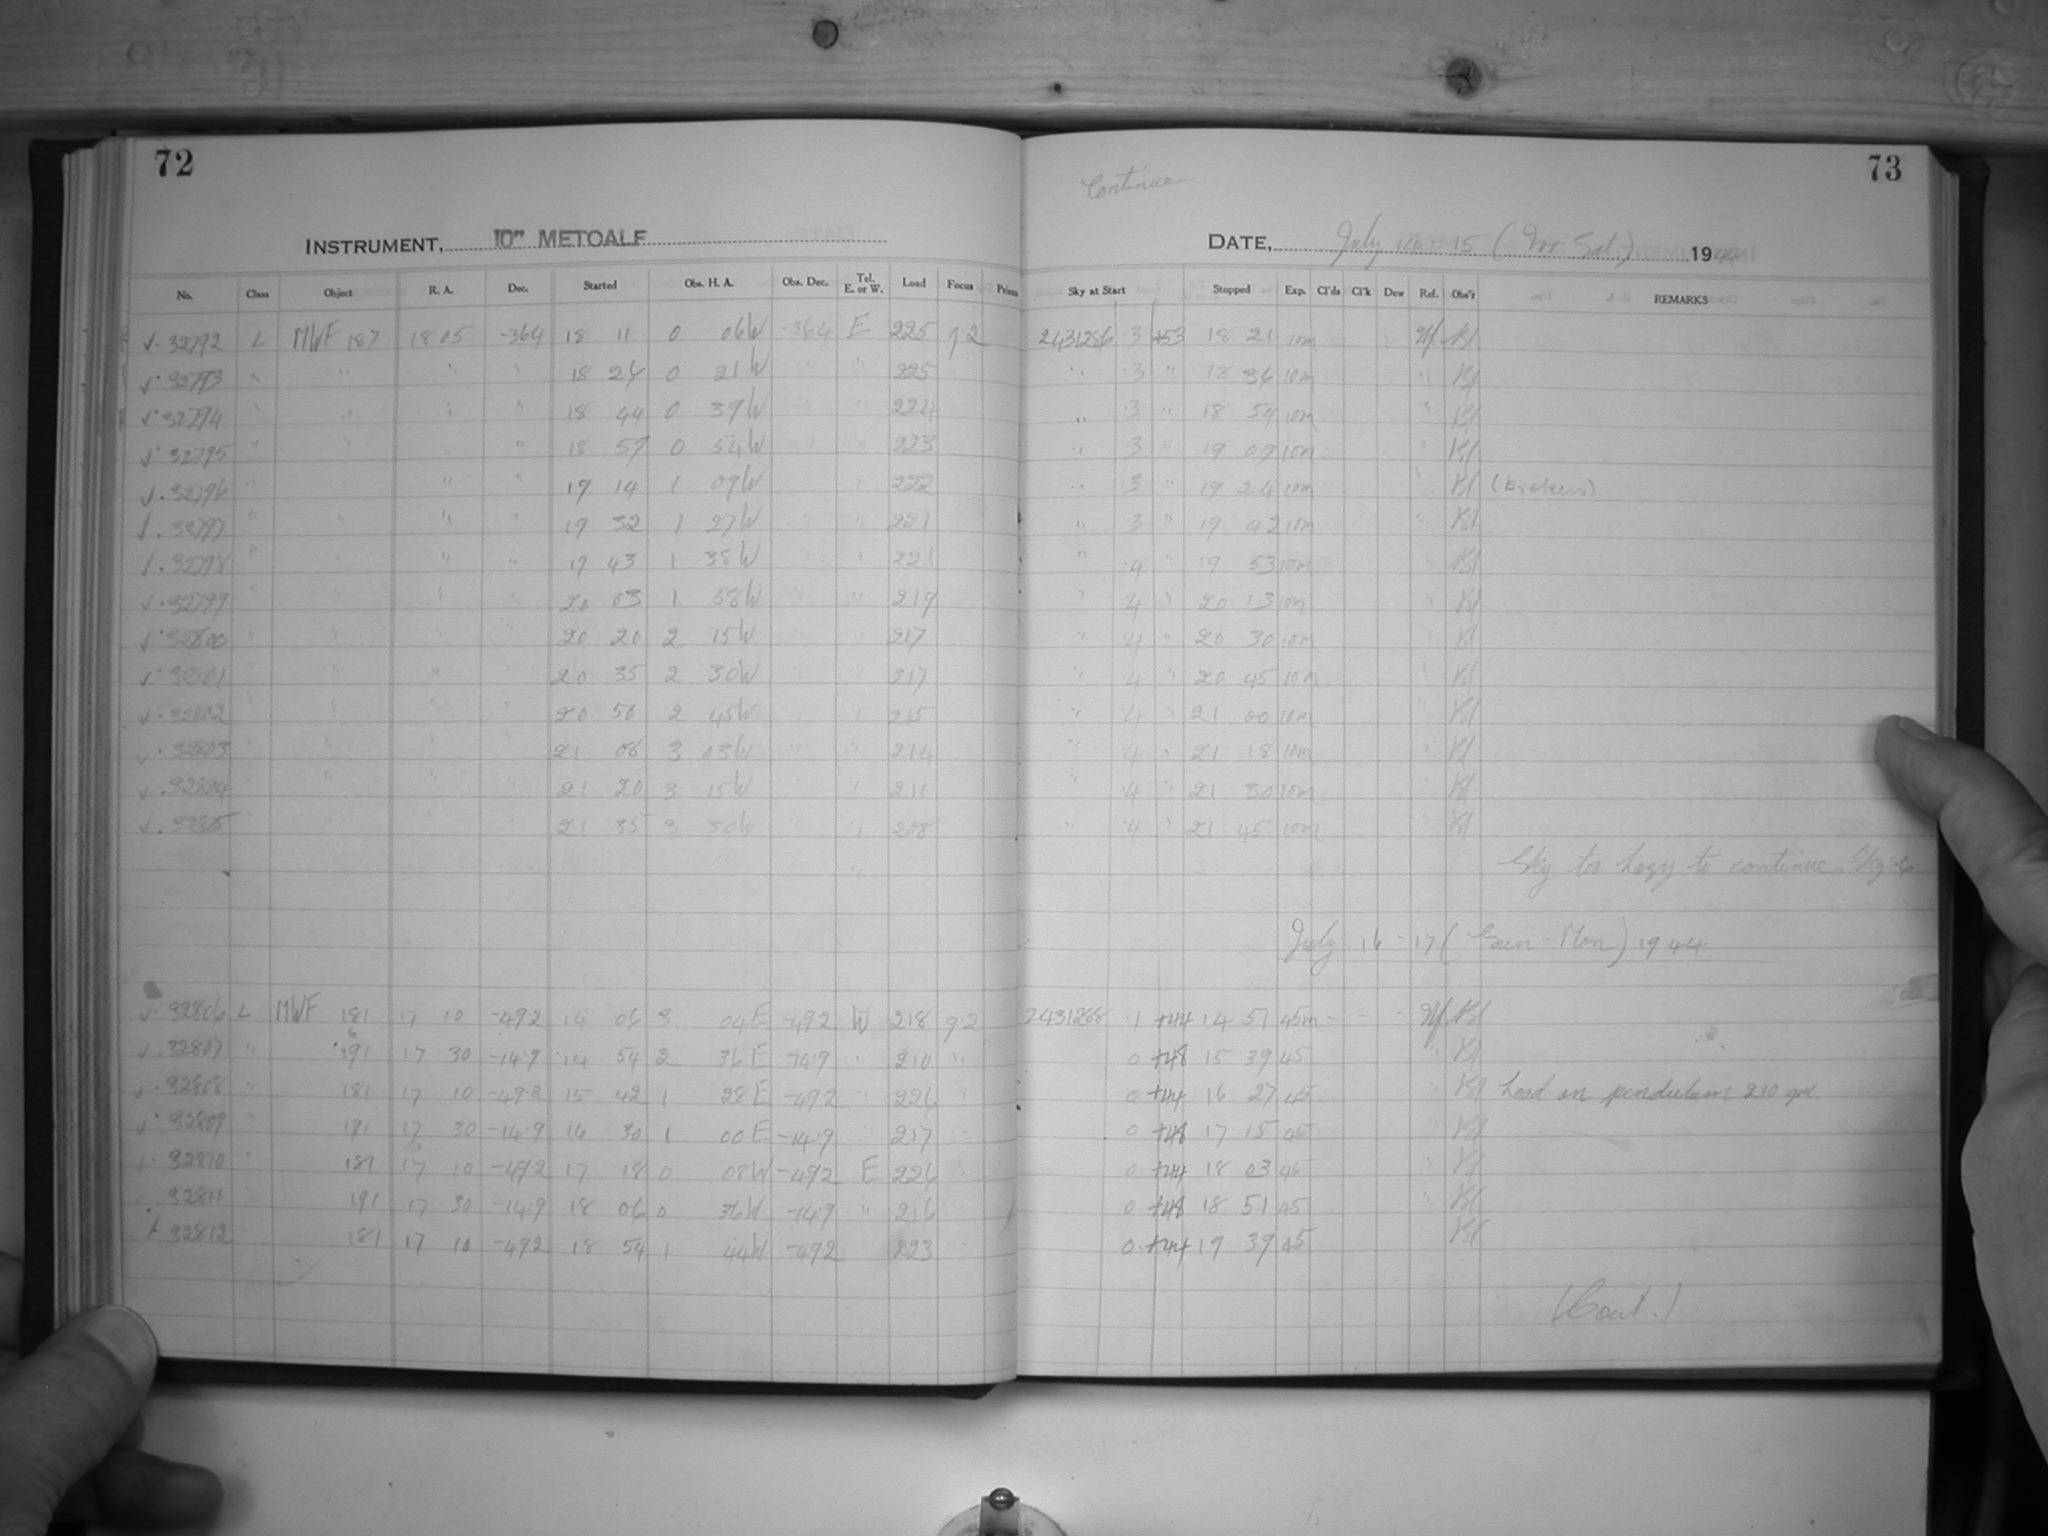 72
INSTRUMENT, 10" METCALF
No. Class Object R. A. Dec. Started Obs. H. A. Obs. Dec. Tel. E. or W. Load Focus Prism
√. 32792 L MWF 187 18 05 -364 18 11 0 06W -364 E 225 9.2
√. 32793 " " " " 18 24 0 21W " " 225
√. 32794 " " " " 18 44 0 39W " " 224
√. 32795 " " " " 18 57 0 52W " " 223
√. 32796 " " " " 19 14 1 09W " " 222
√. 32797 " " " " 19 32 1 27W " " 221
√. 32798 " " " " 19 43 1 38W " " 221
√. 32799 " " " " 20 03 1 58W " " 219
√. 32800 " " " " 20 20 2 15W " " 217
√. 32801 " " " " 20 35 2 30W " " 217
√. 32802 " " " " 20 50 2 45W " " 215
√. 32803 " " " " 21 08 3 03W " " 214
√. 32804 " " " " 21 20 3 15W " " 211
√. 32805 " " " " 21 35 3 30W " " 208
√. 32806 L MWF 181 17 10 -492 14 06 3 04E -492 W 218 9.2
√. 32807 " 191 17 30 -14.9 14 54 2 36E -14.9 " 210 "
√. 32808 " 181 17 10 -49.2 15 42 1 28E -492 " 226
√. 32809 " 191 17 30 -14.9 16 30 1 00E -14.9 " 217
√. 32810 " 181 17 10 -49.2 17 18 0 08W -492 E 226
32811 " 191 17 30 -14.9 18 06 0 36W -14.9 " 216
32812 181 17 10 -492 18 54 1 44W -492 223
Continue
73
DATE, July 14-15 (Fri Sat.) 1944
Sky at Start Stopped Exp. Cl'ds Cl'k Dew Ref. Obs'r REMARKS
2431286 .3 +53 18 21 10m Bl
" 3 " 18 34 10m " Bl
" 3 " 18 54 10m " Bl
" 3 " 19 07 10m " Bl
" 3 " 19 24 10m " Bl (broken)
" 3 " 19 42 10m " Bl
" .4 " 19 53 10m " Bl
" .4 " 20 13 10m " Bl
" .4 " 20 30 10m " Bl
" .4 " 20 45 10m " Bl
" .4 " 21 00 10m " Bl
" .4 " 21 18 10m " Bl
" .4 " 21 30 10m " Bl
" .4 " 21 45 10m " Bl
Sky too hazy to continue. Sky .6
July 16-17 (Sun-Mon) 1944
2431288 .1 +44 14 51 45m - - - Bl
0 +48 15 39 45 " Bl
0 +44 16 27 45 " Bl Load on pendulum 210 gm.
0 +48 17 15 45 " Bl
0 +44 18 03 45 " Bl
0 +48 18 51 45 " Bl
0 +44 19 39 45 Bl
(Cont.)